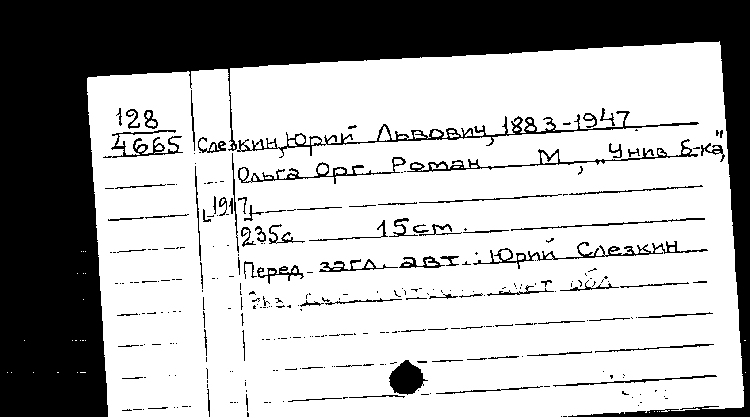 128
4665
Слезкин, Юрий Львович, 1883-1947.
Ольга Орг. Роман. М, „Унив. б-ка",
[1917]
235с 15см.
Перед загл. авт.: Юрий Слезкин
обл